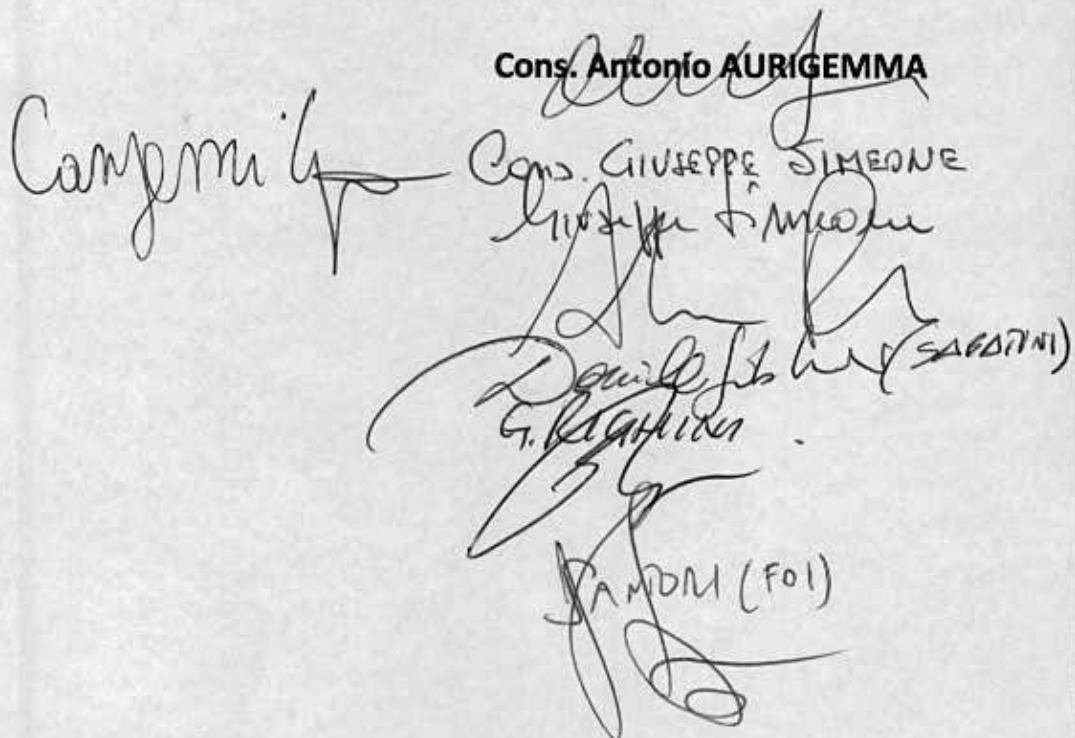 Cons. Antonio AURIGEMMA
Cangemi
Cons. GIUSEPPE SIMEONE
Giuseppe Simeone
Daniele Sabatini (SABATINI)
G. RIGHINI
SANTORI (FDI)